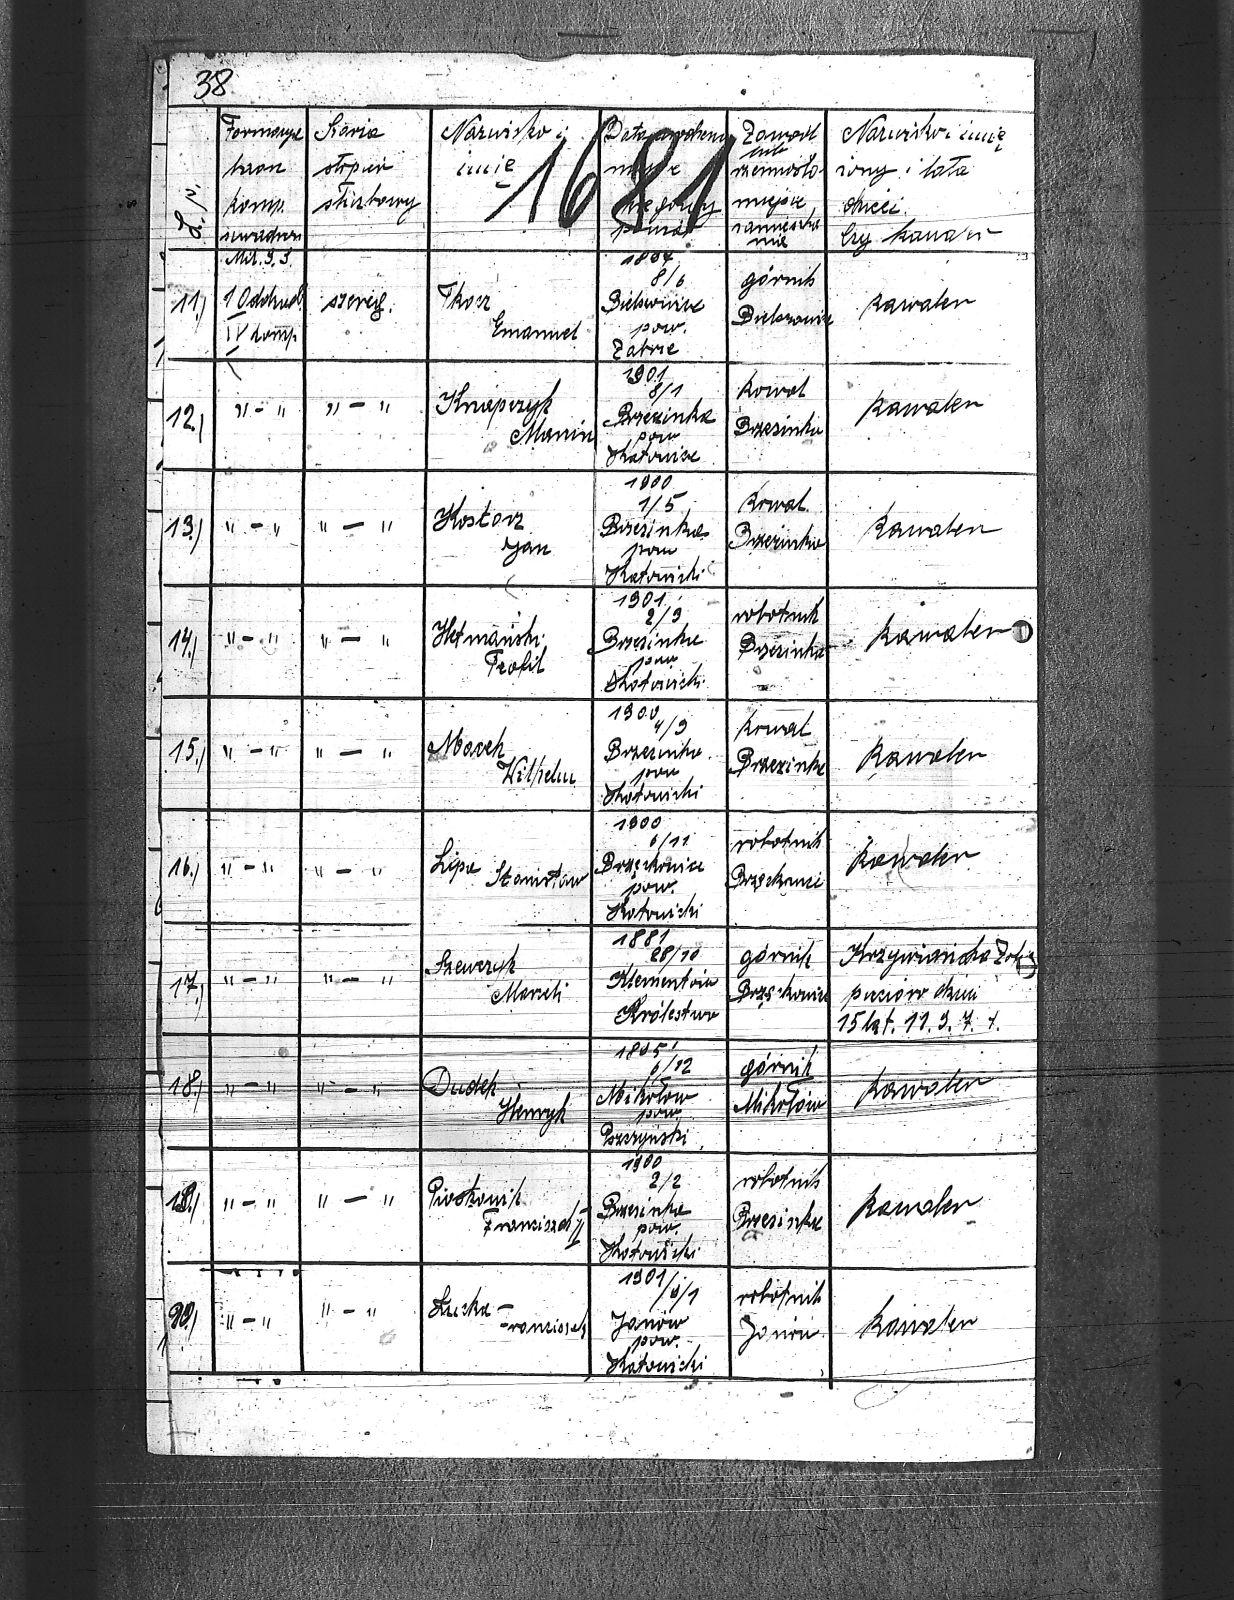 38
L. p.
Formacya
broń
komp.
szwadron
Szarża
stopień
służbowy
Nazwisko i
imię
1681
Data urodzenia
miejsce
powiat
Zawód
rzemiosło
miejsce
zamieszka
nia
Nazwisko i imię
żony i lata
dzieci
Czy kawaler
11.)
1 Oddział
IV komp
szereg.
Tkocz
Emanuel
8/6
Bielszowice
pow.
Zabrze
górnik
Bielszowice
kawaler
12.)
" - "
" - "
Knapczyk
Marcin
1901
8/1
Brzezinka
pow
Katowice
kowal
Brzezinka
kawaler
13.)
" - "
" - "
Kostorz
Jan
1900
1/5
Brzezinka
pow
Katowicki
kowal
Brzezinka
kawaler
14.)
" - "
" - "
Hetmański
Teofil
1901
2/3
Brzezinka
pow
Katowicki
robotnik
Brzezinka
kawaler
15.)
" - "
" - "
Macek
Wilhelm
1900
4/9
Brzezinka
pow
Katowicki
kowal
Brzezinka
kawaler
16.)
" - "
" - "
Lipa
Stanisław
1900
6/11
Brzęckowice
pow.
Katowicki
robotnik
kawaler
17.)
" - "
" - "
Szewczyk
Marceli
1881
28/10
Klementów
Królestwo
górnik
Brzęckowice
pięcioro dzieci
15 lat. 11. 9. 7. 1.
18.)
" - "
" - "
Dudek
Henryk
6/12
Mikołów
pow
Pszczyński
górnik
Mikołów
kawaler
19.)
" - "
" - "
Piotkowik
Franciszek II
1900
2/2
Brzezinka
pow.
Katowicki
robotnik
Brzezinka
kawaler
20.)
" - "
" - "
1901
Janów
pow.
Katowicki
robotnik
Janów
kawaler